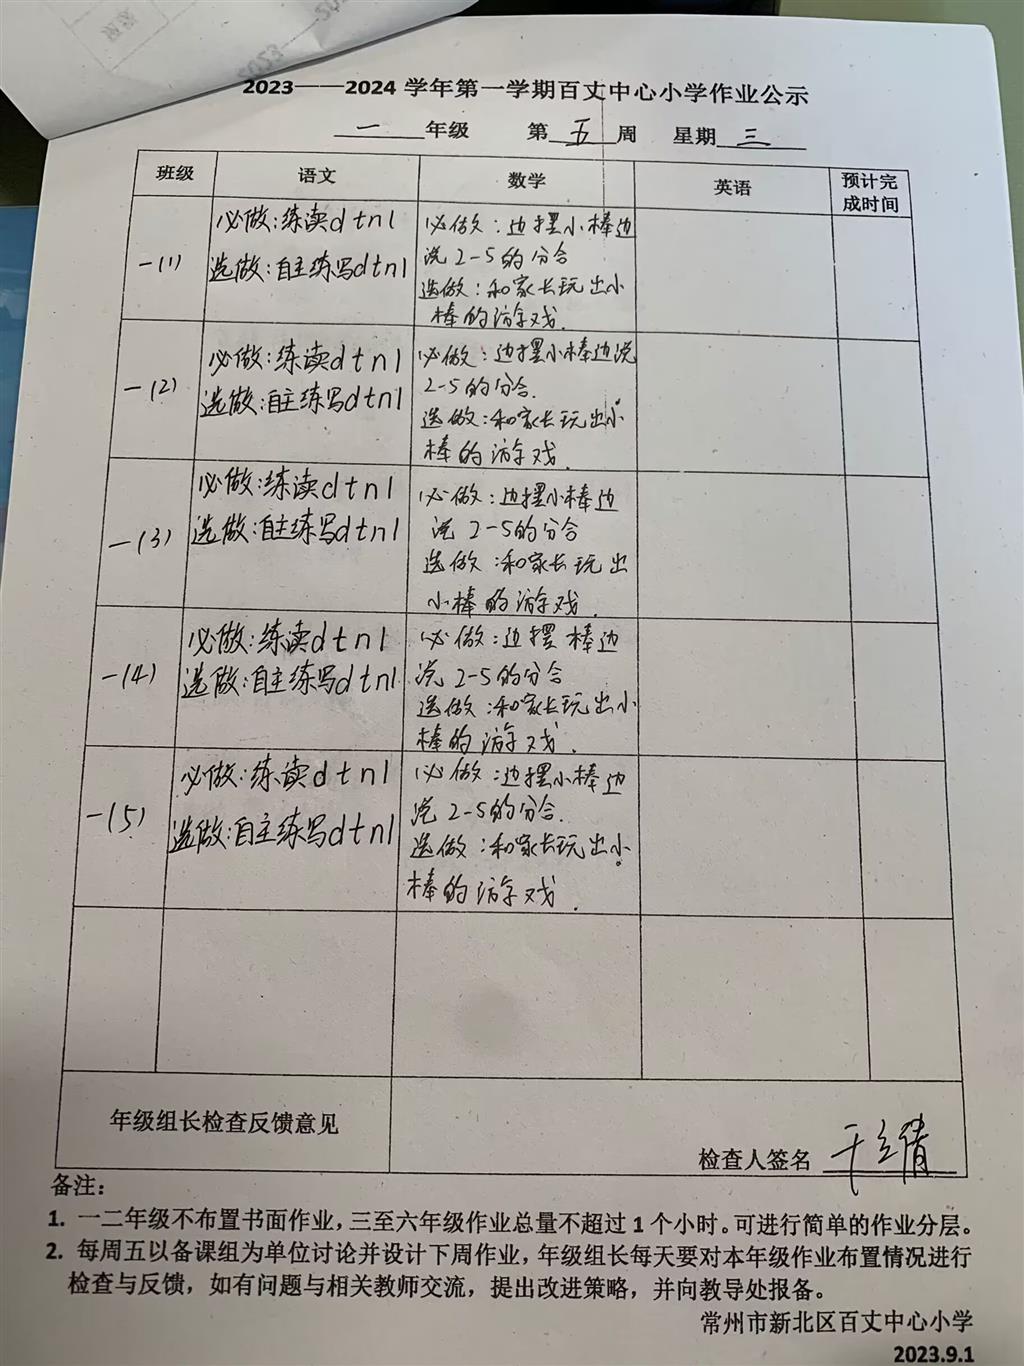 2023——2024 学年第一学期百丈中心小学作业公示
一 年级 第 五 周 星期 三
班级 语文 数学 英语 预计完
成时间
一(1)
必做:练读d t n l
选做:自主练写d t n l
必做:边摆小棒边
说2-5的分合
选做:和家长玩出小
棒的游戏.
一(2)
必做:练读d t n l
选做:自主练写d t n l
必做:边摆小棒边说
2-5的分合.
选做:和家长玩出小
棒的游戏.
一(3)
必做:练读d t n l
选做:自主练写d t n l
必做:边摆小棒边
说 2-5的分合
选做:和家长玩出
小棒的游戏.
一(4)
必做:练读d t n l
选做:自主练写d t n l
必做:边摆 棒边
说 2-5的分合
选做:和家长玩出小
棒的游戏.
一(5)
必做:练读d t n l
选做:自主练写d t n l
必做:边摆小棒边
说2-5的分合.
选做:和家长玩出小
棒的游戏.
年级组长检查反馈意见
检查人签名
备注:
1. 一二年级不布置书面作业,三至六年级作业总量不超过 1 个小时。可进行简单的作业分层。
2. 每周五以备课组为单位讨论并设计下周作业,年级组长每天要对本年级作业布置情况进行
检查与反馈,如有问题与相关教师交流,提出改进策略,并向教导处报备。
常州市新北区百丈中心小学
2023.9.1